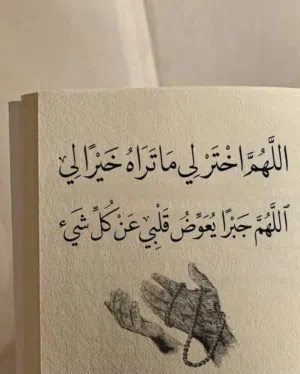 اللَّهُمَّ اخْتَرْ لِي مَا تَرَاهُ خَيْرًا لِي
اَللَّهُمَّ جَبْرًا يُعَوِّضُ قَلْبِي عَنْ كُلِّ شَيْء